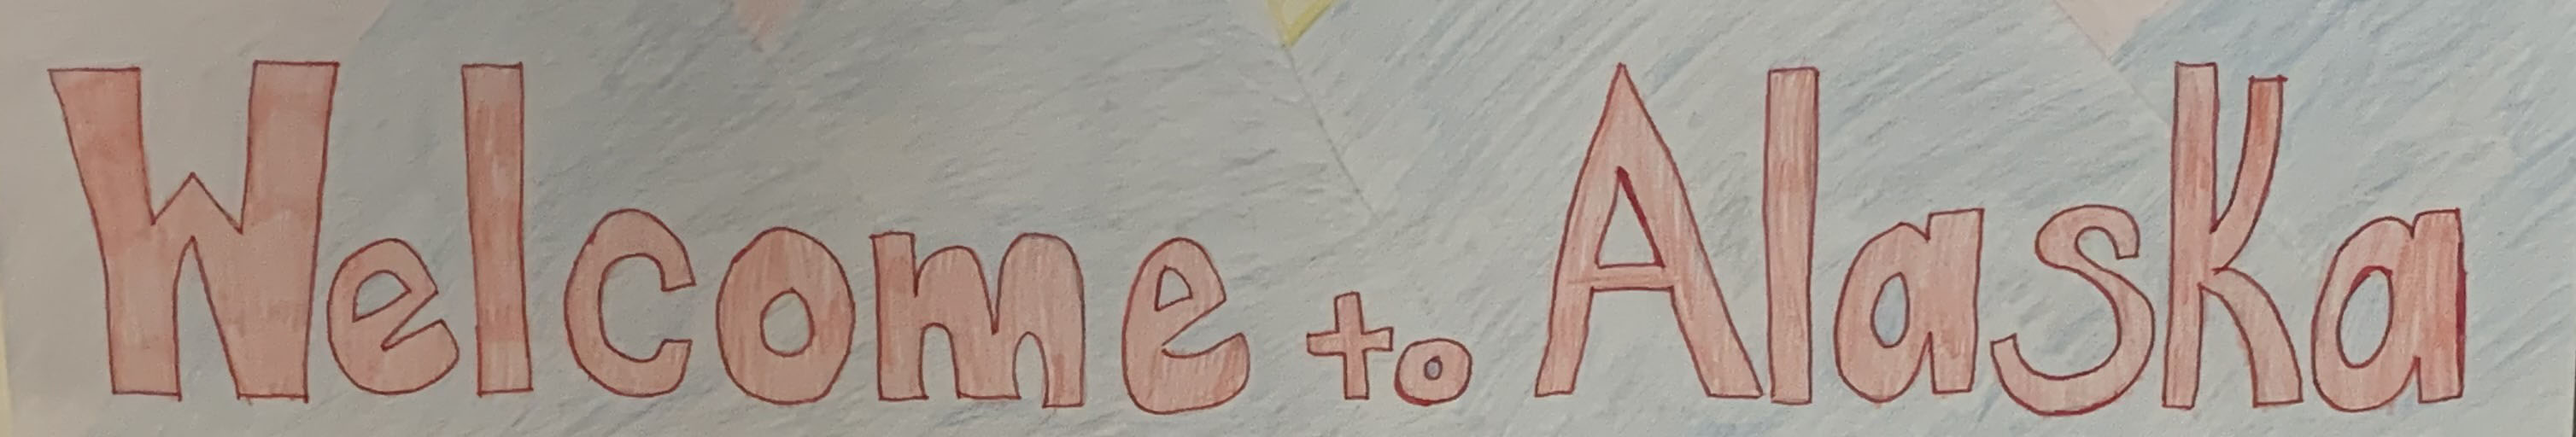 Welcome to Alaska